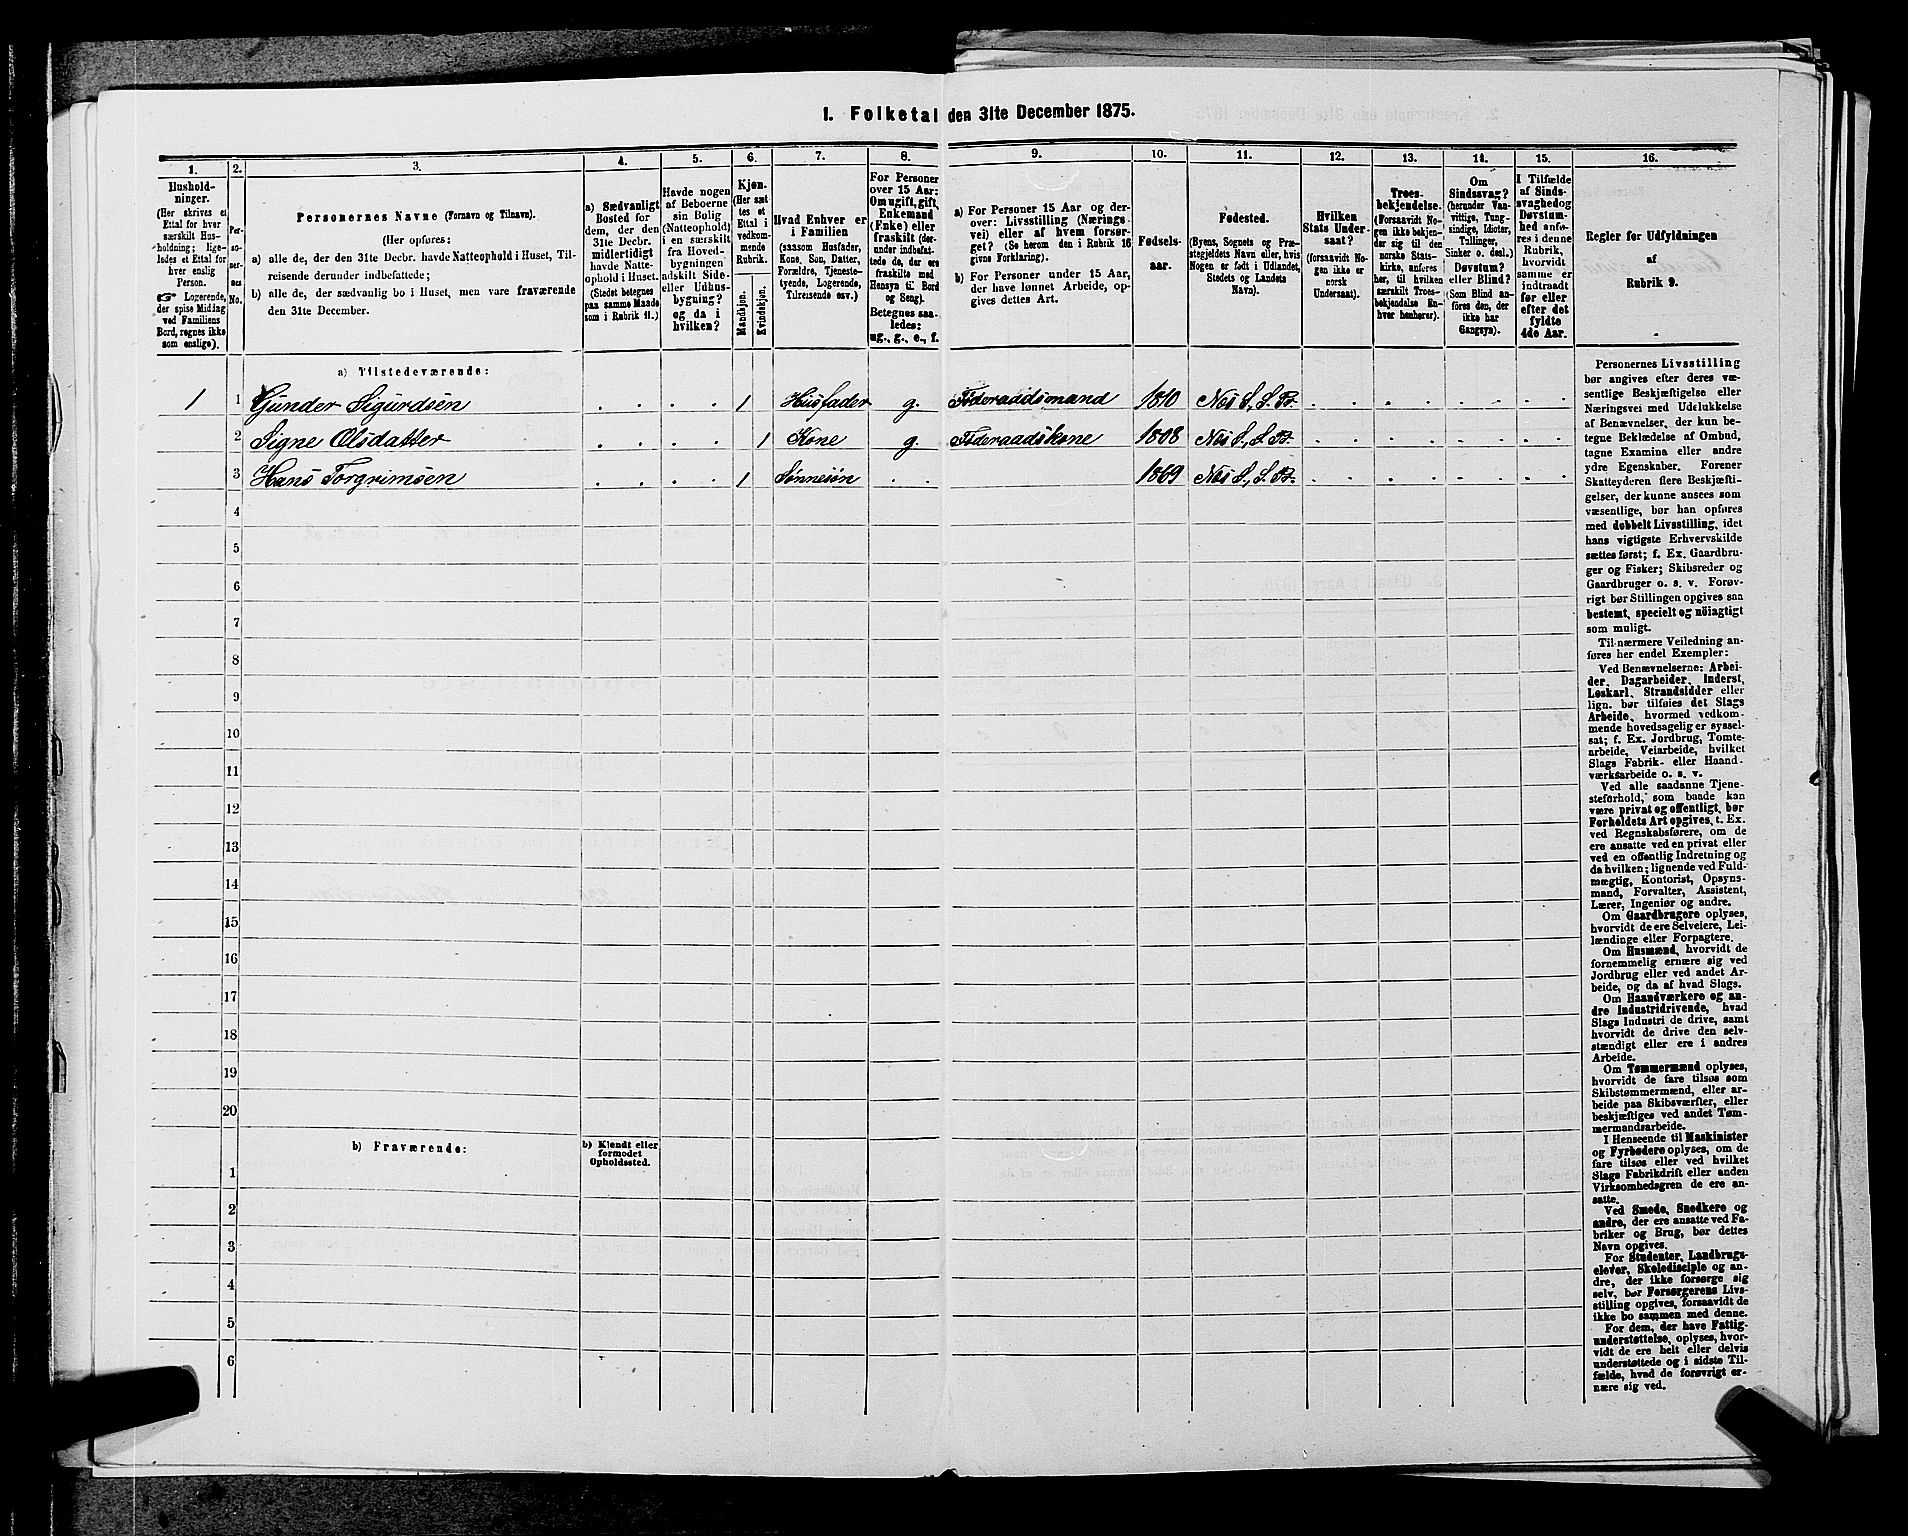 1. Folketal den 31te December 1875.
1. 2. 3. 4. 5. 6. 7. 8. 9. 10. 11. 12. 13. 14. 15. 16.
Hushold-
ninger.
(Her skrives et
Ettal for hver
særskilt Hus-
holdning; lige-
ledes et Ettal for
hver enslig
Person.
☞ Logerende,
der spise Middag
ved Familiens
Bord, regnes ikke
som enslige).
Per-
so-
ner-
nes
No.
Personernes Navne (Fornavn og Tilnavn).
(Her opføres:
a) alle de, der den 31te Decbr. havde Natteophold i Huset, Til-
reisende derunder indbefattede;
b) alle de, der sædvanlig bo i Huset, men vare fraværende
den 31te December.
a) Sædvanligt
Bosted for
dem, der den
31te Decbr.
midlertidigt
havde Natte-
ophold i Huset.
(Stedet betegnes
paa samme Maade
som i Rubrik 11.)
Havde nogen
af Beboerne
sin Bolig
(Natteophold)
i en særskilt
fra Hoved-
bygningen
adskilt Side-
eller Udhus-
bygning?
og da i
hvilken?
Kjøn.
(Her sæt-
tes et
Ettal i
vedkom-
mende
Rubrik.
Mandkjøn.
Kvindekjøn.
Hvad Enhver er
i Familien
(saasom Husfader,
Kone, Søn, Datter,
Forældre, Tjeneste-
tyende, Logerende,
Tilreisende osv.)
For Personer
over 15 Aar:
Om ugift, gift,
Enkemand
(Enke) eller
fraskilt (der-
under indbefat-
tede de, der ere
fraskilte med
Hensyn til Bord
og Seng).
Betegnes saa-
ledes:
ug., g., e., f.
a) For Personer 15 Aar og der-
over: Livsstilling (Nærings-
vei) eller af hvem forsør-
get? (Se herom den i Rubrik 16
givne Forklaring).
b) For Personer under 15 Aar,
der have lønnet Arbeide, op-
gives dettes Art.
Fødsels-
aar.
Fødested.
(Byens, Sognets og Præ-
stegjeldets Navn eller, hvis
Nogen er født i Udlandet,
Stedets og Landets
Navn).
Hvilken
Stats Under-
saat?
(forsaavidt No-
gen ikke er
norsk
Undersaat).
Troes-
bekjendelse.
(Forsaavidt No-
gen ikke bekjen-
der sig til den
norske Stats-
kirke, anføres
her, til hvilken
særskilt Troes-
bekjendelse En-
hver henhører).
Om
Sindssvag?
(herunder Van-
vittige, Tung-
sindige, Idioter,
Tullinger,
Sinker o. desl.)
Døvstum?
eller Blind?
(Som Blind an-
føres den, der
ikke har
Gangsyn).
I Tilfælde
af Sinds-
svaghed og
Døvstum-
hed anfø-
res i denne
Rubrik,
hvorvidt
samme er
indtraadt
før eller
efter det
fyldte
4de Aar.
Regler for Udfyldningen
af
Rubrik 9.
a) Tilstedeværende:
1 1 Gunder Sigurdsen . . . . 1 Husfader g. Føderaadsmand 1810 Næs S., S. Pr. . . . . . . . .
2 Signe Olsdatter . . . . 1 Kone g. Føderaadskone 1808 Næs S., S. Pr. . . . . . . . .
3 Hans Torgrimsen . . . . 1 Sønnesøn . . 1869 Næs S., S. Pr. . . . . . . . .
4
5
6
7
8
9
10
11
12
13
14
15
16
17
18
19
20
b) Fraværende:
b) Kjendt eller
formodet
Opholdssted.
1
2
3
4
5
6
Personernes Livsstilling
bør angives efter deres væ-
sentlige Beskjæftigelse eller
Næringsvei med Udelukkelse
af Benævnelser, der kun be-
tegne Beklædelse af Ombud,
tagne Examina eller andre
ydre Egenskaber. Forener
Skatteyderen flere Beskjæfti-
gelser, der kunne ansees som
væsentlige, bør han opføres
med dobbelt Livsstilling, idet
hans vigtigste Erhvervskilde
sættes først; f. Ex. Gaardbru-
ger og Fisker; Skibsreder og
Gaardbruger o. s. v. Forøv-
rigt bør Stillingen opgives saa
bestemt, specielt og nøiagtigt
som muligt.
Til nærmere Veiledning an-
føres her endel Exempler:
Ved Benævnelserne: Arbei-
der, Dagarbeider, Inderst,
Løskarl, Strandsidder eller
lign. bør tilføies det Slags
Arbeide, hvormed vedkom-
mende hovedsagelig er syssel-
sat; f. Ex. Jordbrug, Tomte-
arbeide, Veiarbeide, hvilket
Slags Fabrik- eller Haand-
værksarbeide o. s. v.
Ved alle saadanne Tjene-
steforhold, som baade kan
være privat og offentligt, bør
Forholdets Art opgives, t. Ex.
ved Regnskabsførere, om de
ere ansatte ved en privat eller
ved en offentlig Indretning og
da hvilken; lignende ved Fuld-
mægtig, Kontorist, Opsyns-
mand, Forvalter, Assistent,
Lærer, Ingeniør og andre.
Om Gaardbrugere oplyses,
hvorvidt de ere Selveiere, Lei-
lændinge eller Forpagtere.
Om Husmænd, hvorvidt de
fornemmelig ernære sig ved
Jordbrug eller ved andet Ar-
beide, og da af hvad Slags.
Om Haandværkere og an-
dre Industridrivende, hvad
Slags Industri de drive, samt
hvorvidt de drive den selv-
stændigt eller ere i andres
Arbeide.
Om Tømmermænd oplyses,
hvorvidt de fare tilsøs som
Skibstømmermænd, eller ar-
beide paa Skibsværfter, eller
beskjæftiges ved andet Tøm-
mermandsarbeide.
I Henseende til Maskinister
og Fyrbødere oplyses, om de
fare tilsøs eller ved hvilket
Slags Fabrikdrift eller anden
Virksomhedsgren de ere an-
satte.
Ved Smede, Snedkere og
andre, der ere ansatte ved Fa-
briker og Brug, bør dettes
Navn opgives.
For Studenter, Landbrugs-
elever, Skoledisciple og an-
dre, der ikke forsørge sig
selv, bør Forsørgerens Livs-
stilling opgives, forsaavidt de
ikke bo sammen med denne.
For dem, der have Fattig-
understøttelse, oplyses, hvor-
vidt de ere helt eller delvis
understøttede og i sidste Til-
fælde, hvad de forøvrigt er-
nære sig ved.